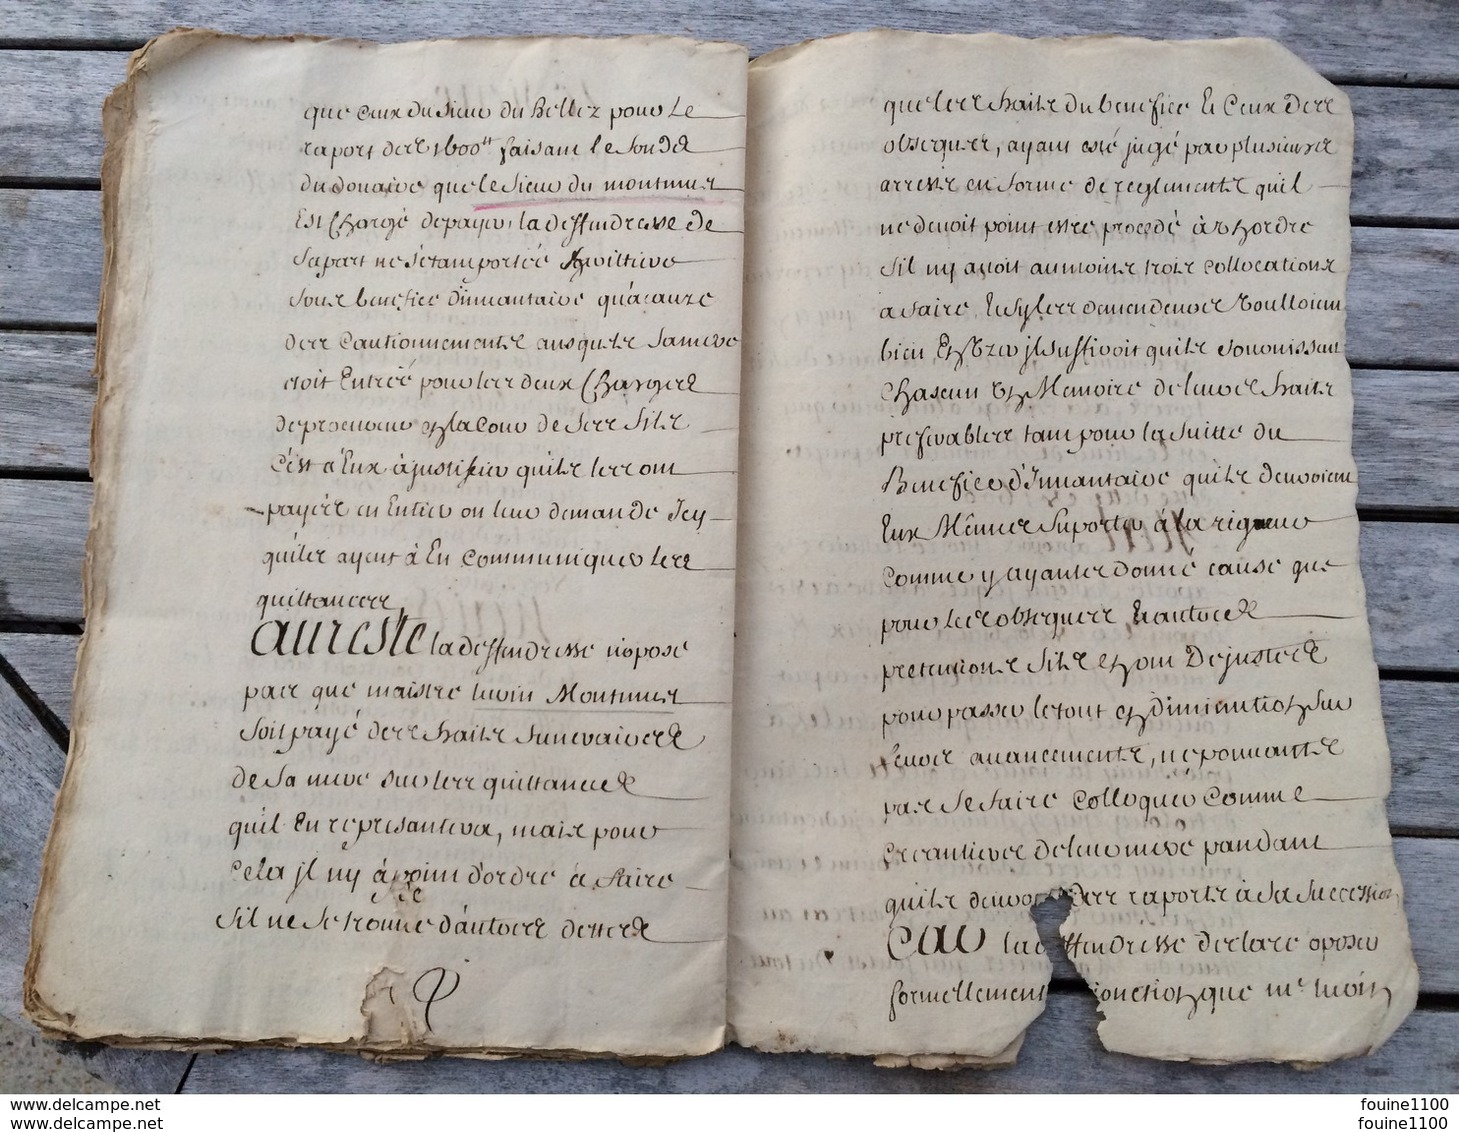 que ceux du sieur du Bellez pour le
raport des 1600tt faisant le fond
du douaire que le sieur du montmur
Est Chargé de payer, la deffendresse de
sa part ne s'étant portée héritiere
sous benefice d'inuantaire qu'à cauze
des cautionnements ausquels sa mere
etoit Entrée pour les deux Charges
de procureur en la Cour de ses fils
C'est à Eux à justifier qu'ils les ont
payées en Entier on leur demande Icy
qu'ils ayent à En communiquer les
quittances,
aureste la deffendresse n'opose
pas que maistre Montmur
soit payé des fraits funeraires
de sa mere sur les quittances
qu'il En representera, mais pour
cela jl ny à point d'ordre à faire
sil ne se trouue d'autres dettes
que les fraits du benefice Et Ceux des
obseques, ayant esté jugé par plusieurs
arrests en forme de reglements quil
ne deuoit point estre procedé à l'hordre
sil ny auoit aumoins trois collocations
a faire, Et sy les demendeurs Voulloient
bien jl suffiroit quils fournissent
chascun Mémoire de leurs fraits
preferables tant pour la suitte du
Benefice d'Inuantaire quils deuroient
Eux Mêmes suporter à la rigueur
comme y ayants donné cause que
pour les obseques Et autres
pretensions sils en ont De justes
pour passer le tout en diminution sur
leurs auancements, ne pouuants
pas se faire Colloquer comme
creantiers de leur mere pandant
quils des raports à sa succession
Car la deffendresse declare oposer
formellement que me